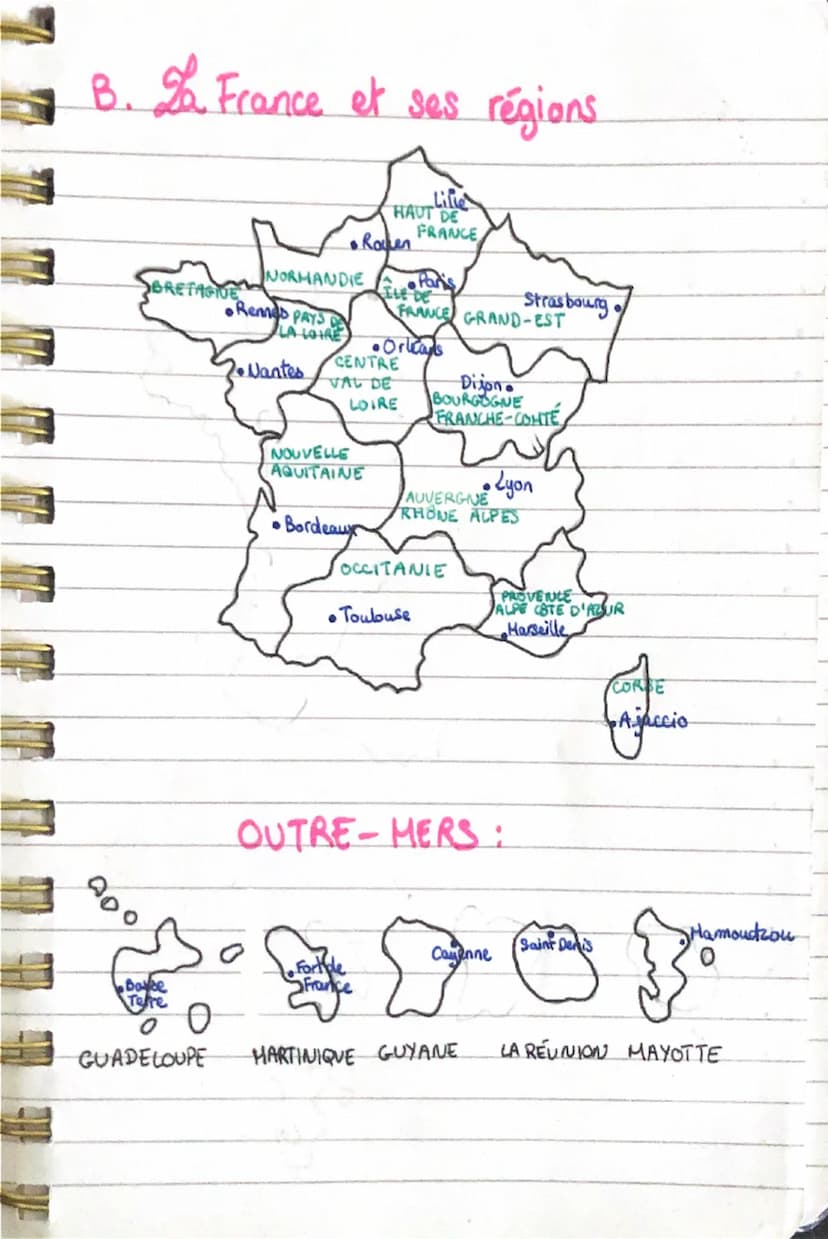 B. La France et ses régions
Lille
HAUT DE
FRANCE
Rouen
NORMANDIE
Paris
ÎLE DE
FRANCE
Strasbourg
GRAND-EST
BRETAGNE
Rennes
PAYS DE
LA LOIRE
Orléans
CENTRE
VAL DE
LOIRE
Nantes
Dijon
BOURGOGNE
FRANCHE-COMTÉ
NOUVELLE
AQUITAINE
Lyon
AUVERGNE
RHÔNE ALPES
Bordeaux
OCCITANIE
Toulouse
PROVENCE
ALPE CÔTE D'AZUR
Marseille
CORSE
Ajaccio
OUTRE-MERS :
Basse
Terre
Fort de
France
Cayenne
Saint Denis
Mamoudzou
GUADELOUPE
MARTINIQUE
GUYANE
LA RÉUNION
MAYOTTE